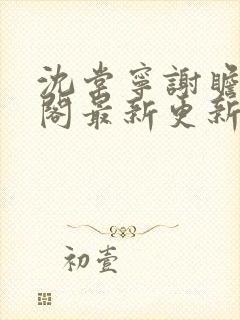 沈棠寧謝瞻
閣最新更新
初壹